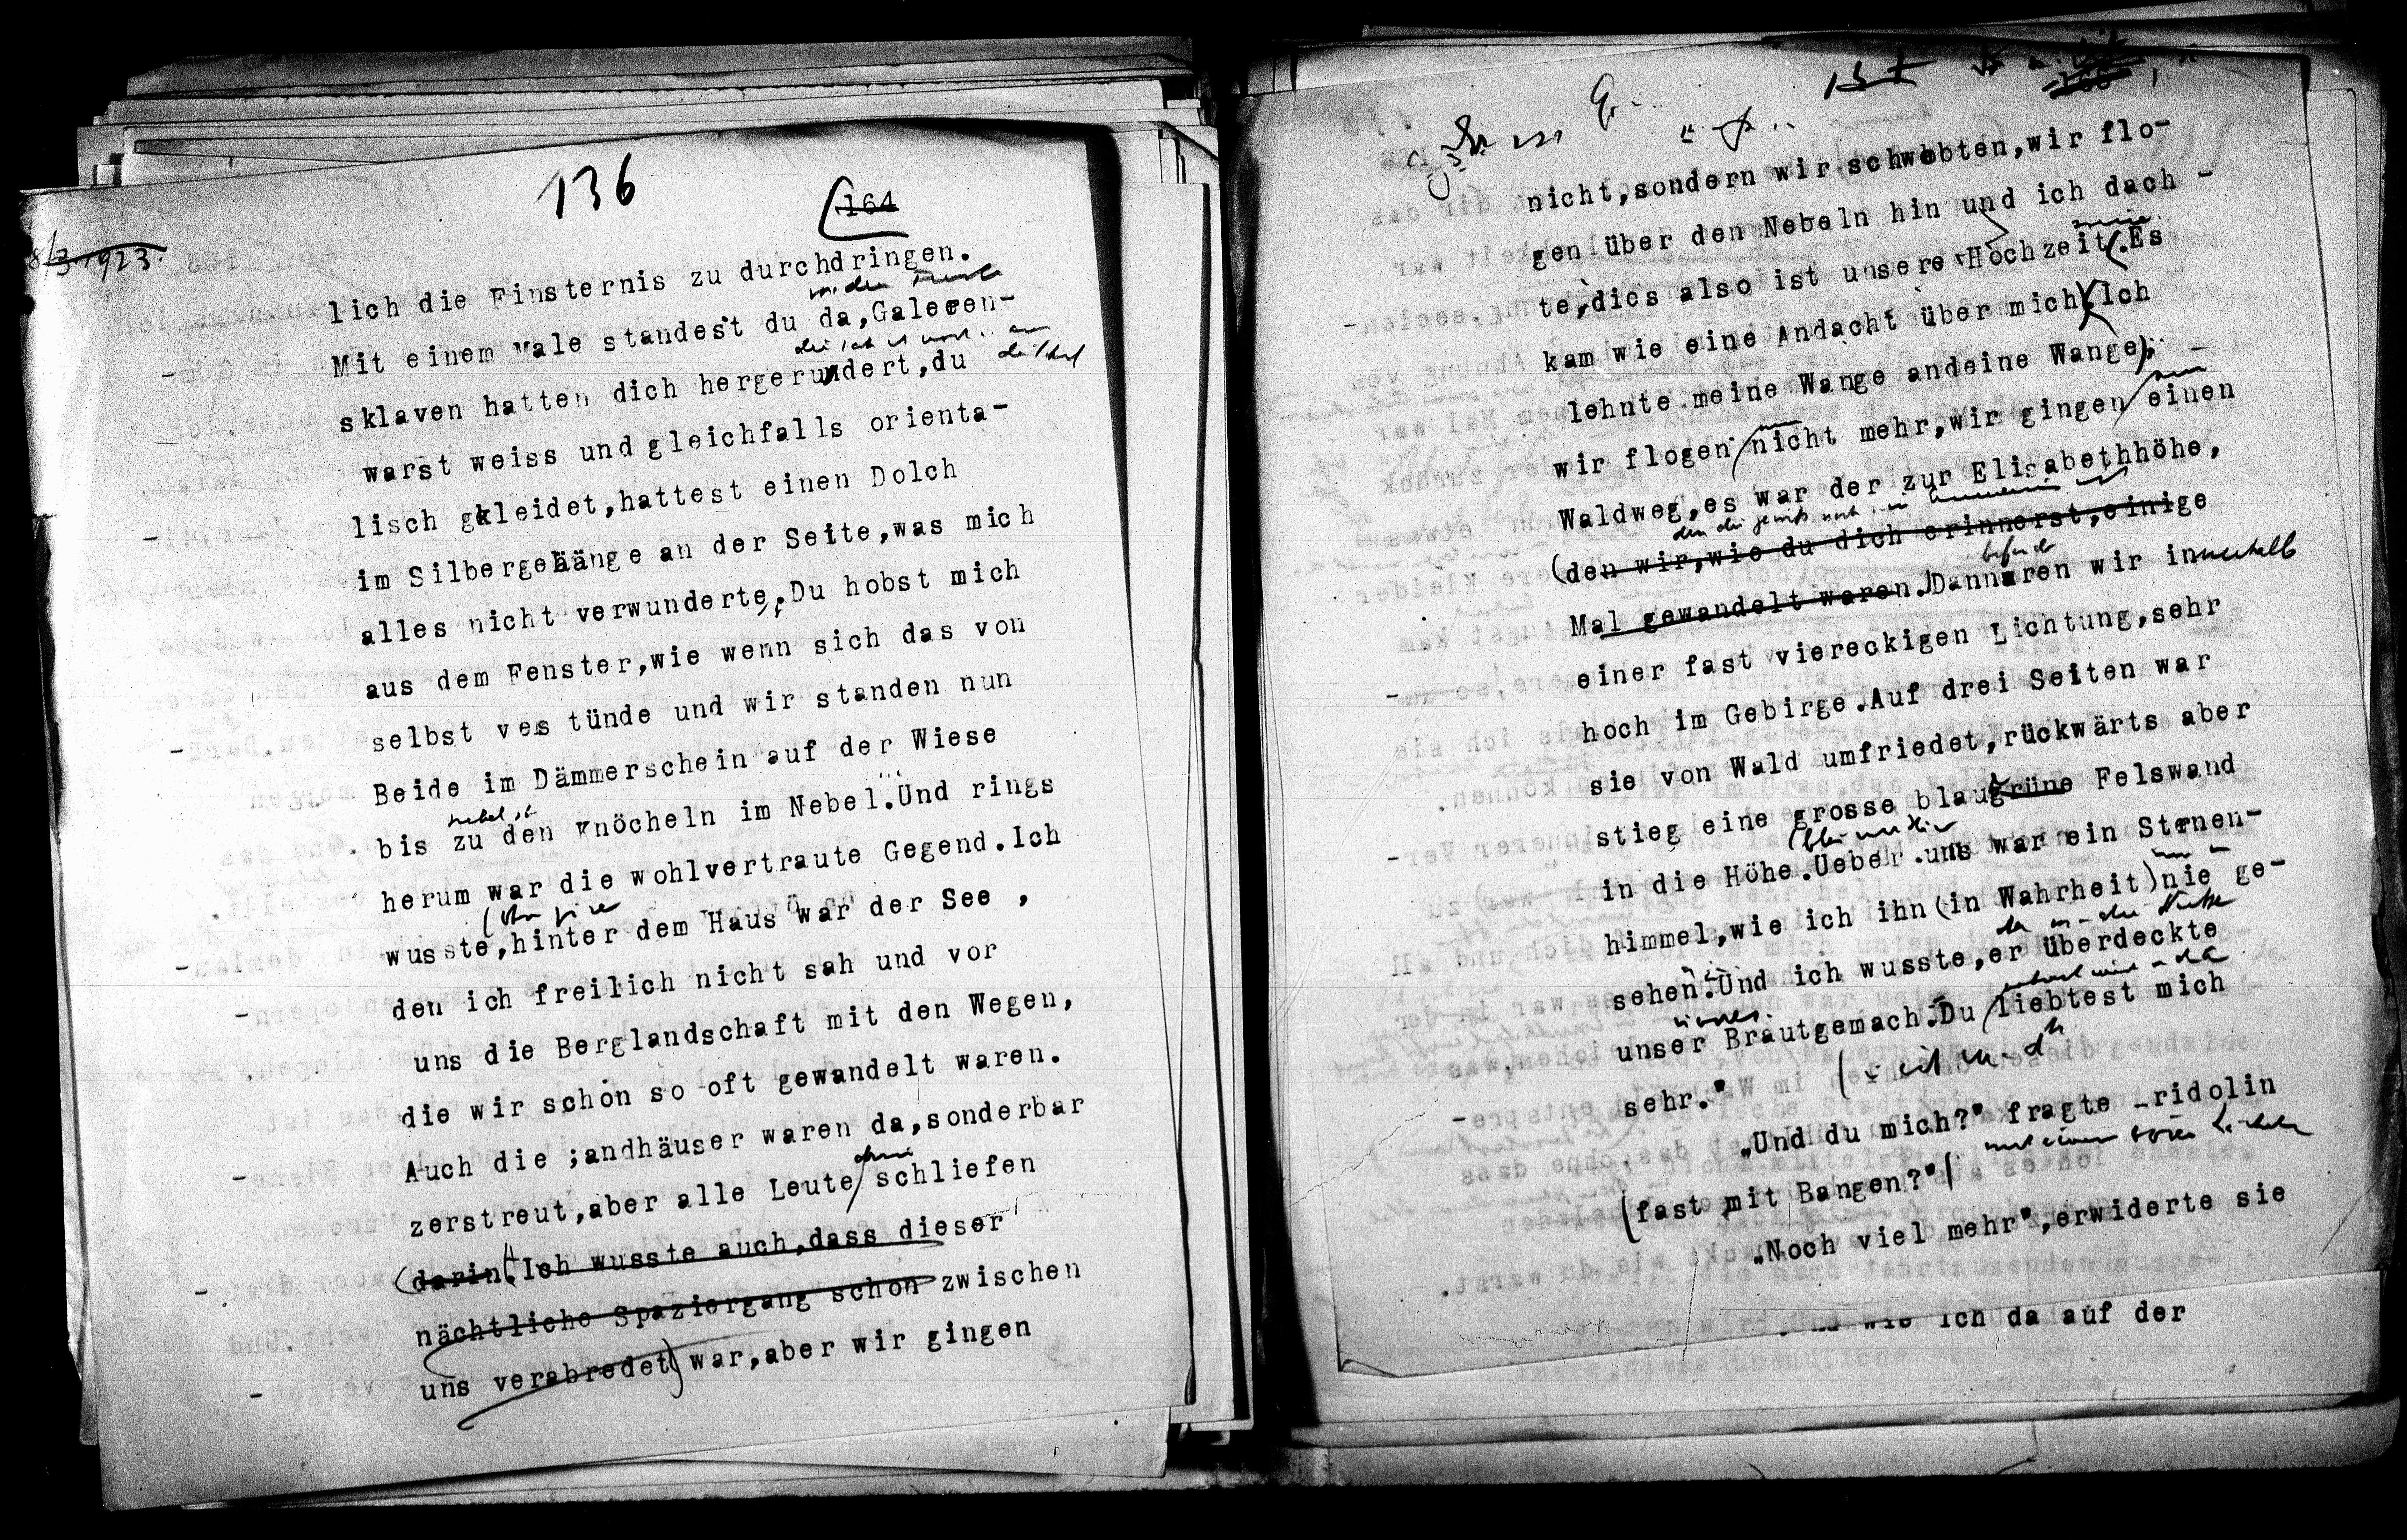 136
164
8/3 1923.
lich die Finsternis zu durchdringen.
Mit einem Male standest du da,Galeeren-
sklaven hatten dich hergerudert,du
warst weiss und gleichfalls orienta-
lisch gekleidet,hattest einen Dolch
im Silbergehänge an der Seite,was mich
alles nicht verwunderte.Du hobst mich
aus dem Fenster,wie wenn sich das von
selbst ves tünde und wir standen nun
Beide im Dämmerschein auf der Wiese
bis zu den Knöcheln im Nebel.Und rings
herum war die wohlvertraute Gegend.Ich
wusste,hinter dem Haus war der See ,
den ich freilich nicht sah und vor
uns die Berglandschaft mit den Wegen,
die wir schon so oft gewandelt waren.
Auch die ;andhäuser waren da,sonderbar
zerstreut,aber alle Leute schliefen
(darin.Ich wusste auch,dass dieser
nächtliche Spaziergang schon zwischen
uns verabredet) war,aber wir gingen
137
nicht,sondern wir schwebten,wir flo-
gen über den Nebeln hin und ich dach -
te,dies also ist unsere Hochzeit.Es
kam wie eine Andacht über mich.Ich
lehnte meine Wange andeine Wange,
wir flogen nicht mehr,wir gingen einen
nun
Waldweg,es war der zur Elisabethhöhe,
(den wir,wie du dich erinnerst,einige
Mal gewandelt waren.)Dann waren wir innerhalb
einer fast viereckigen Lichtung,sehr
hoch im Gebirge.Auf drei Seiten war
sie von Wald umfriedet,rückwärts aber
stieg eine grosse blaugrüne Felswand
in die Höhe.Ueber uns war ein Sternen-
himmel,wie ich ihn (in Wahrheit) nie ge-
sehen.Und ich wusste,er überdeckte
unser Brautgemach.Du liebtest mich
sehr."
„Und du mich?" fragte _ridolin
(fast mit Bangen?"
„Noch viel mehr",erwiderte sie
wie ich da auf der